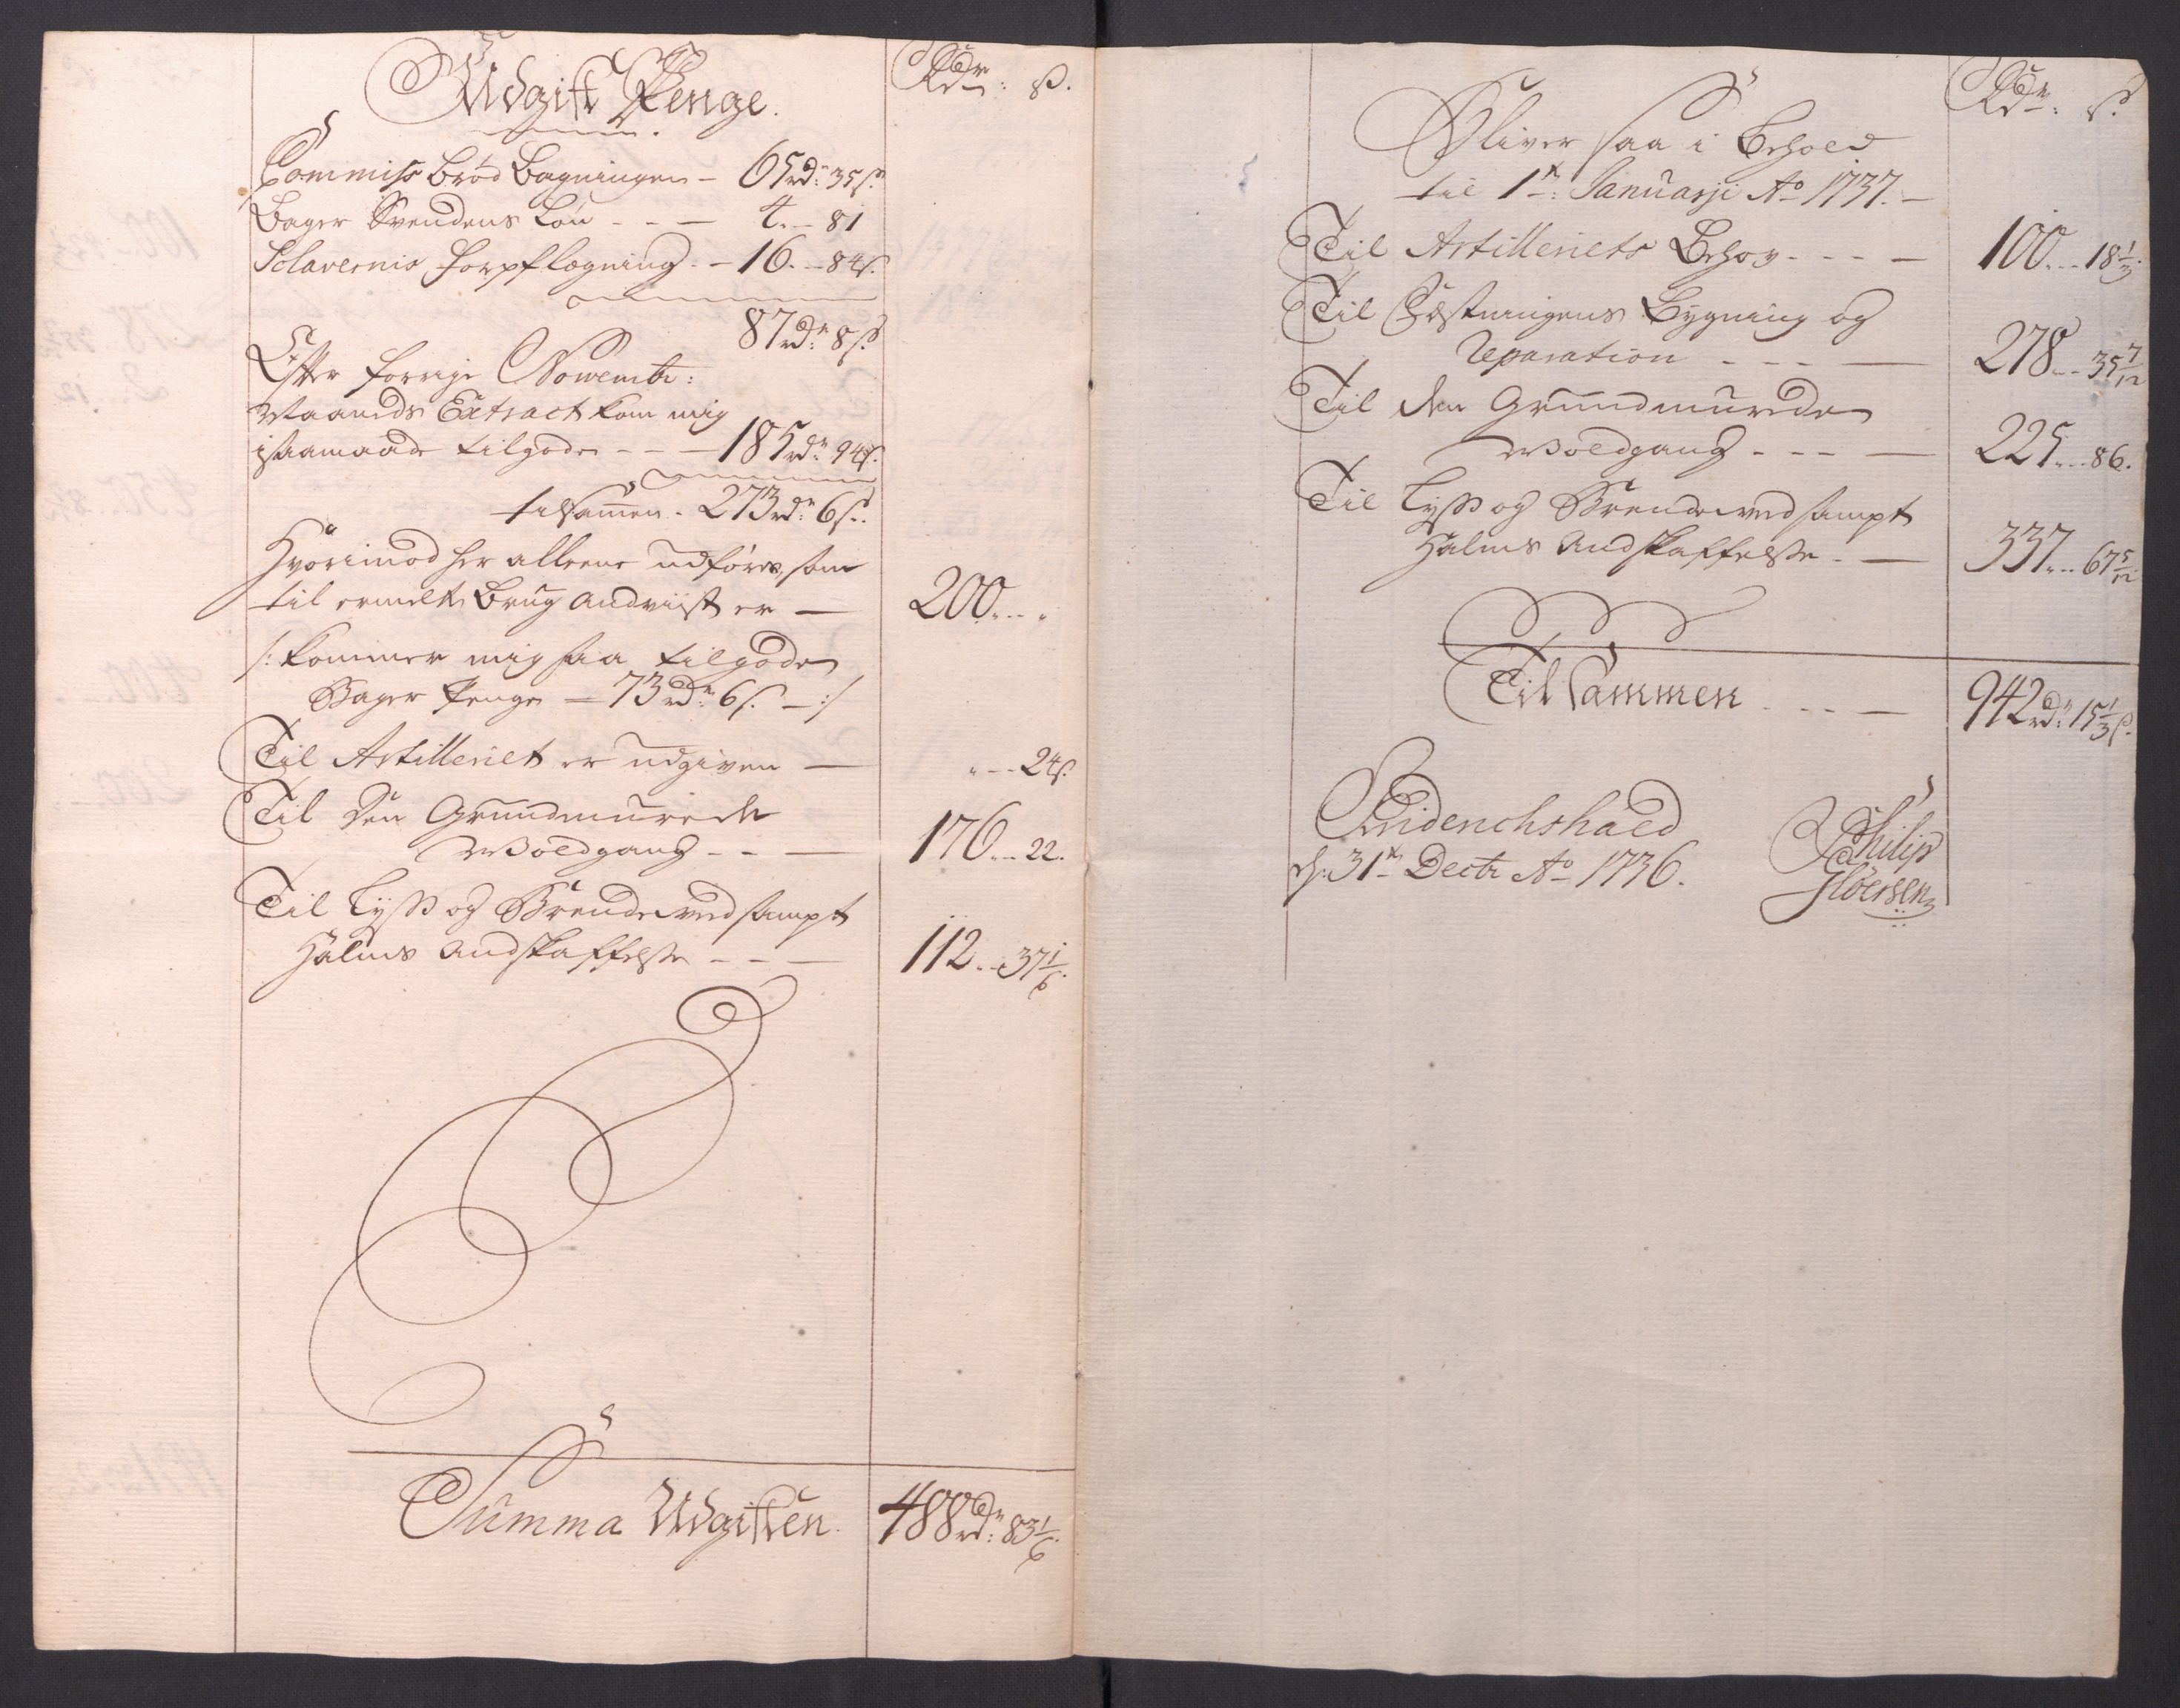 Udgift Penge.
Rdr: ß.
Commiss Brød Bagningen - 65rdr: 35ß.
Bager Svendens Løn - - - 4. - 81
Sclavernis Forpflægning. - 16. - 84ß.
87rdr: 8ß
Efter forrige Novembr:
Maanids Extract kom mig
isaamaade tilgode - - - 185rdr: 94ß.
tilsamen. 273rdr: 6ß.
Hvorimod her alleene udføres, som
til ermelte Brug andviist er — 200. - - „
/: kommer mig saa tilgode
Bager Penge — 73rdr: 6ß. — :/
Til Artilleriet er udgiven — „ - - 24ß.
Til Den Grundmurede
Woldgang - - — 176. - - 22.
Til Lyss og Brendeved sampt
Halms Andskaffelse - - — 112. - - 37 1/6.
Summa Udgiften. 488rdr: 83 1/6.
Rdr: ß.
Bliver saa i Behold
til 1te: Januarji Ao 1737. —
Til Artilleriets Behov - - - — 100. - - 18 1/3.
Til Fæstningens Bygning og
Reparation - - - — 278. - - 35 7/12
Til den Grundmurede
Woldgang - - - — 225. - - 86.
Til Lyss og Brendeved sampt
Halms Andskaffelse. — 337. - - 67 5/12.
Tilsammen - - - — 942rdr: 15 1/3 ß.
Friderichshald
d: 31te Decbr Ao 1736.
Philip